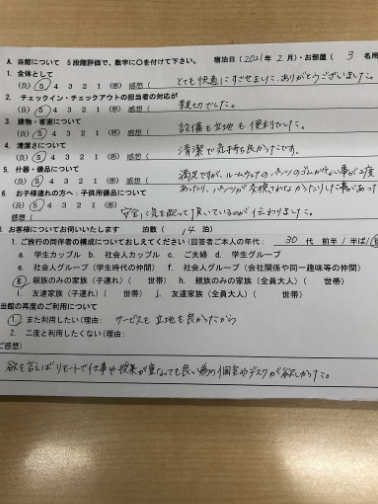 A. 当館について 5段階評価で、数字に○を付けて下さい。 宿泊日(2021年2月)・お部屋( 3 名用
1. 全体として
(良) 5 4 3 2 1 (悪) 感想( とても快適にすごせました。ありがとうございました。
2. チェックイン・チェックアウトの担当者の対応が
(良) 5 4 3 2 1 (悪) 感想( 親切でした。
3. 建物・客室について
(良) 5 4 3 2 1 (悪) 感想( 設備も立地も便利でした。
4. 清潔さについて
(良) 5 4 3 2 1 (悪) 感想( 清潔で気持ち良かったです。
5. 什器・備品について 満足ですが、ルームウェアのパンツのゴムがない事が2度
(良) 5 4 3 2 1 (悪) 感想( あったり、パンツが交換されなかったりした事があった
6. お子様連れの方へ:子供用備品について
感想( 安全に気を配って頂いているのが伝わりました。
お客様についてお伺いいたします 泊数( 14 泊)
1. ご旅行の同伴者の構成についておしえてください(回答者ご本人の年代: 30 代 前半/半ば/
a. 学生カップル b. 社会人カップル c. ご夫婦 d. 学生グループ
e. 社会人グループ(学生時代の仲間) f. 社会人グループ(会社関係や同一趣味等の仲間)
g. 親族のみの家族(子連れ)( 世帯) h. 親族のみの家族(全員大人)( 世帯)
i. 友達家族(子連れ)( 世帯) j. 友達家族(全員大人)( 世帯)
当館の再度のご利用について
1. また利用したい(理由: サービスも立地も良かったから
2. 二度と利用したくない(理由:
ご感想)
欲を言えばリモートで仕事や授業が重なっても良い様の個室やデスクが欲しかった。